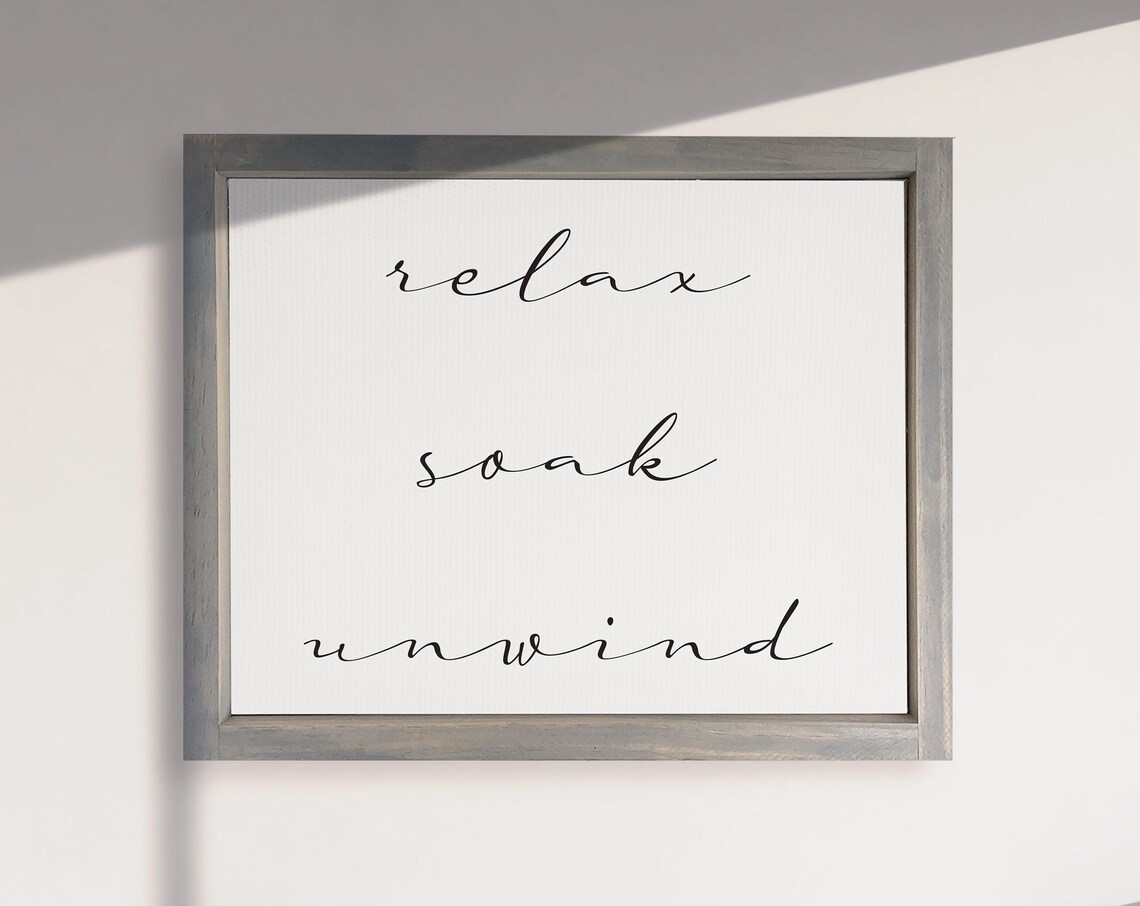 relax
soak
unwind